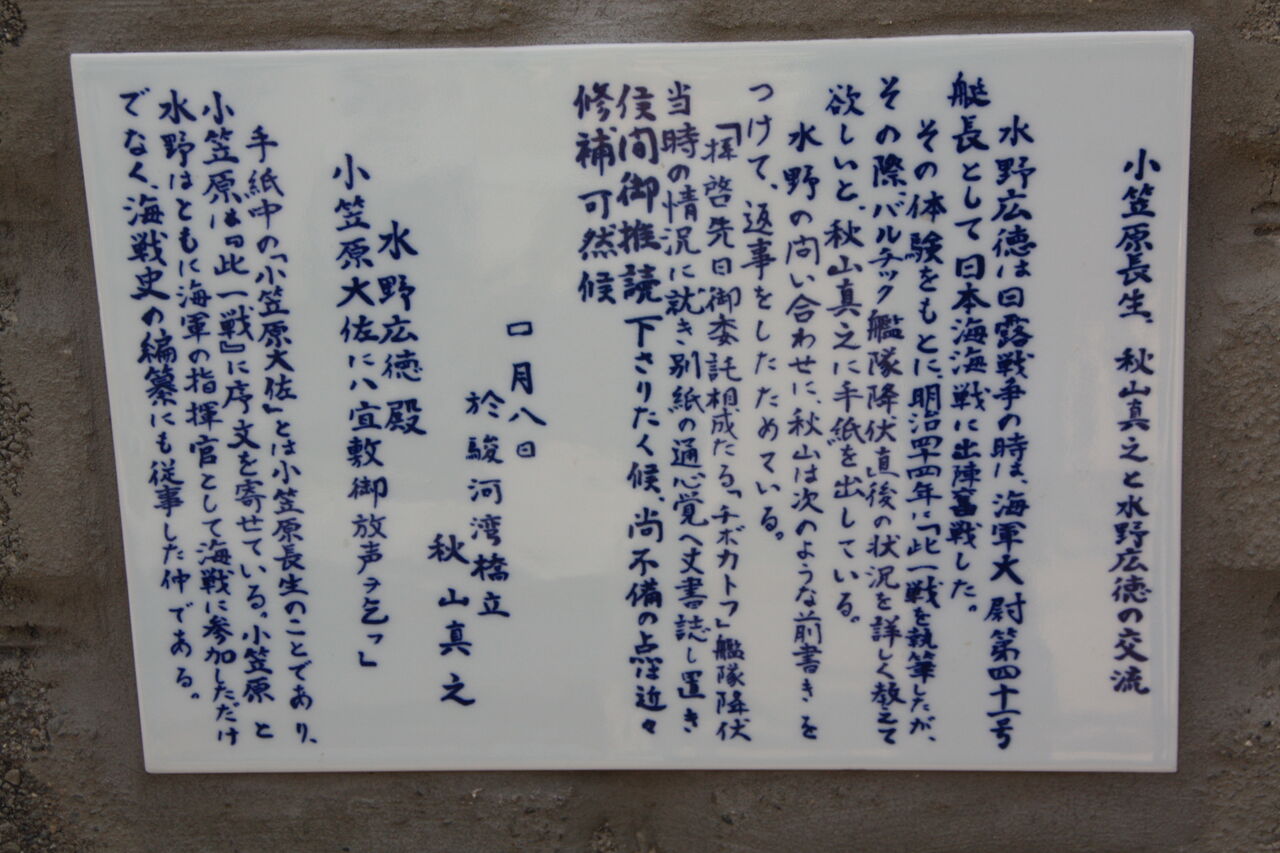 小笠原長生、秋山真之と水野広徳の交流
水野広徳は日露戦争の時は、海軍大尉第四十一号
艇長として日本海海戦に出陣奮戦した。
その体験をもとに、明治四十四年に「此一戦を執筆したが、
その際、バルチック艦隊降伏直後の状況を詳しく教えて
欲しいと、秋山真之に手紙を出している。
水野の問い合わせに、秋山は次のような前書きを
つけて、返事をしたためている。
「拝啓先日御委託相成たる「ネボカトフ」艦隊降伏
当時の情況に就き別紙の通心覚へ丈書誌し置き
候間御推読下さりたく候、尚不備の点は近々
修補可然候
口月八日
於駿河湾橋立
秋山真之
水野広徳殿
小笠原大佐にハ宜敷御放声ヲ乞う」
手紙中の「小笠原大佐」とは小笠原長生のことであり、
小笠原は『此一戦』に序文を寄せている。小笠原と
水野はともに海軍の指揮官として海戦に参加しただけ
でなく、海戦史の編纂にも従事した仲である。